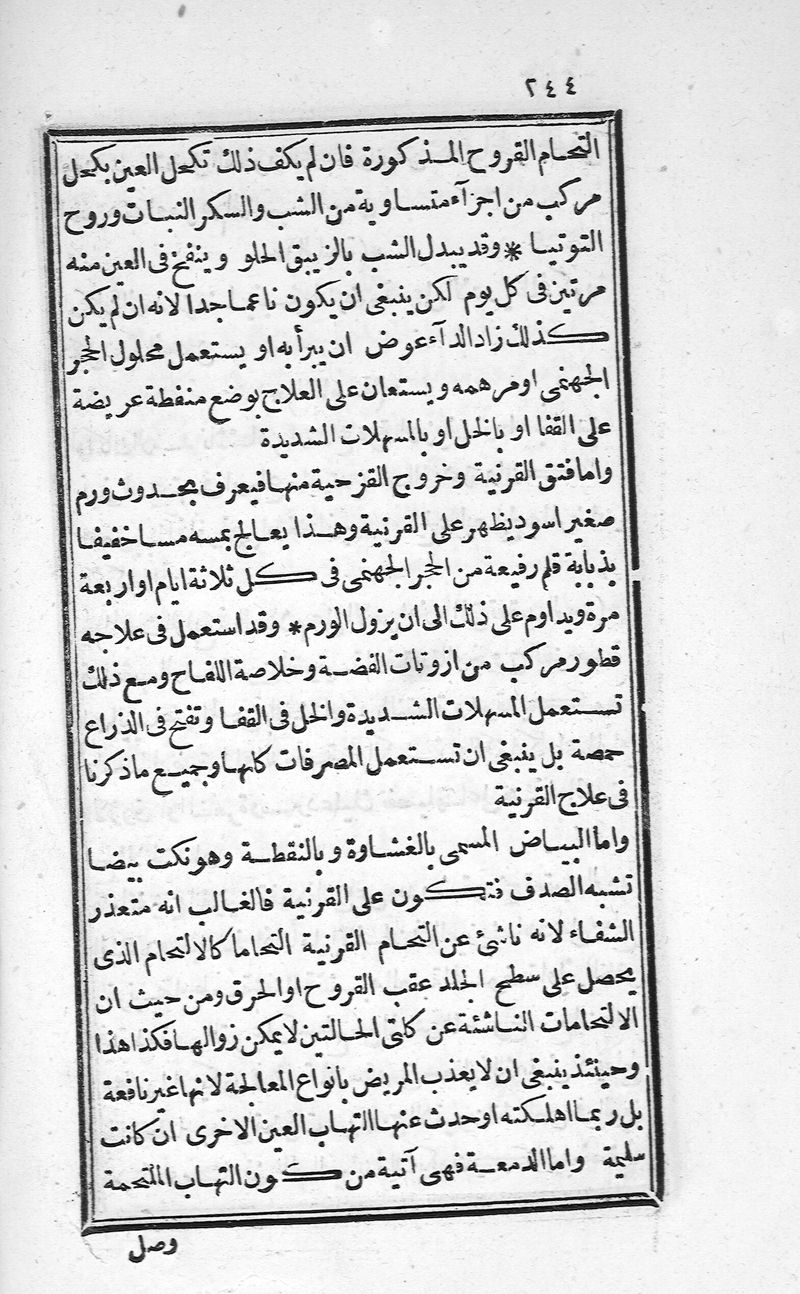 ٢٤٤
التحام القروح المذكورة فان لم يكف ذلك تكحل العين بكحل
مركب من اجزآء متساوية من الشب والسكر النبات وروح
التوتيا * وقد يبدل الشب بالزيبق الحلو وينفخ فى العين منه
مرتين فى كل يوم لكن ينبغى ان يكون ناعما جدا لانه ان لم يكن
كذلك زاد الدآء عوض ان يبرأ به او يستعمل محلول الحجر
الجهنمى او مرهمه ويستعان على العلاج بوضع منفطة عريضة
على القفا او بالخل او بالمسهلات الشديدة
واما فتق القرنية وخروج القزحية منها فيعرف بحدوث ورم
صغير اسود يظهر على القرنية وهذا يعالج بمسه مسا خفيفا
بذبابة قلم رفيعة من الحجر الجهنمى فى كل ثلاثة ايام او اربعة
مرة ويداوم على ذلك الى ان يزول الورم * وقد استعمل فى علاجه
قطور مركب من ازوتات الفضة وخلاصة اللفاح ومع ذلك
تستعمل المسهلات الشديدة والخل فى القفا وتفتح فى الذراع
حمصة بل ينبغى ان تستعمل المصرفات كلها وجميع ما ذكرنا
فى علاج القرنية
واما البياض المسمى بالغشاوة وبالنقطة وهو نكت بيضا
تشبه الصدف فتكون على القرنية فالغالب انه متعذر
الشفاء لانه ناشئ عن التحام القرنية التحاما كالالتحام الذى
يحصل على سطح الجلد عقب القروح او الحرق ومن حيث ان
الالتحامات الناشئة عن كلتى الحالتين لا يمكن زوالها فكذا هذا
وحينئذ ينبغى ان لا يعذب المريض بانواع المعالجة لانها غير نافعة
بل ربما اهلكته او حدث عنها التهاب العين الاخرى ان كانت
سليمة واما الدمعة فهى آتية من كون التهاب الملتحمة
وصل